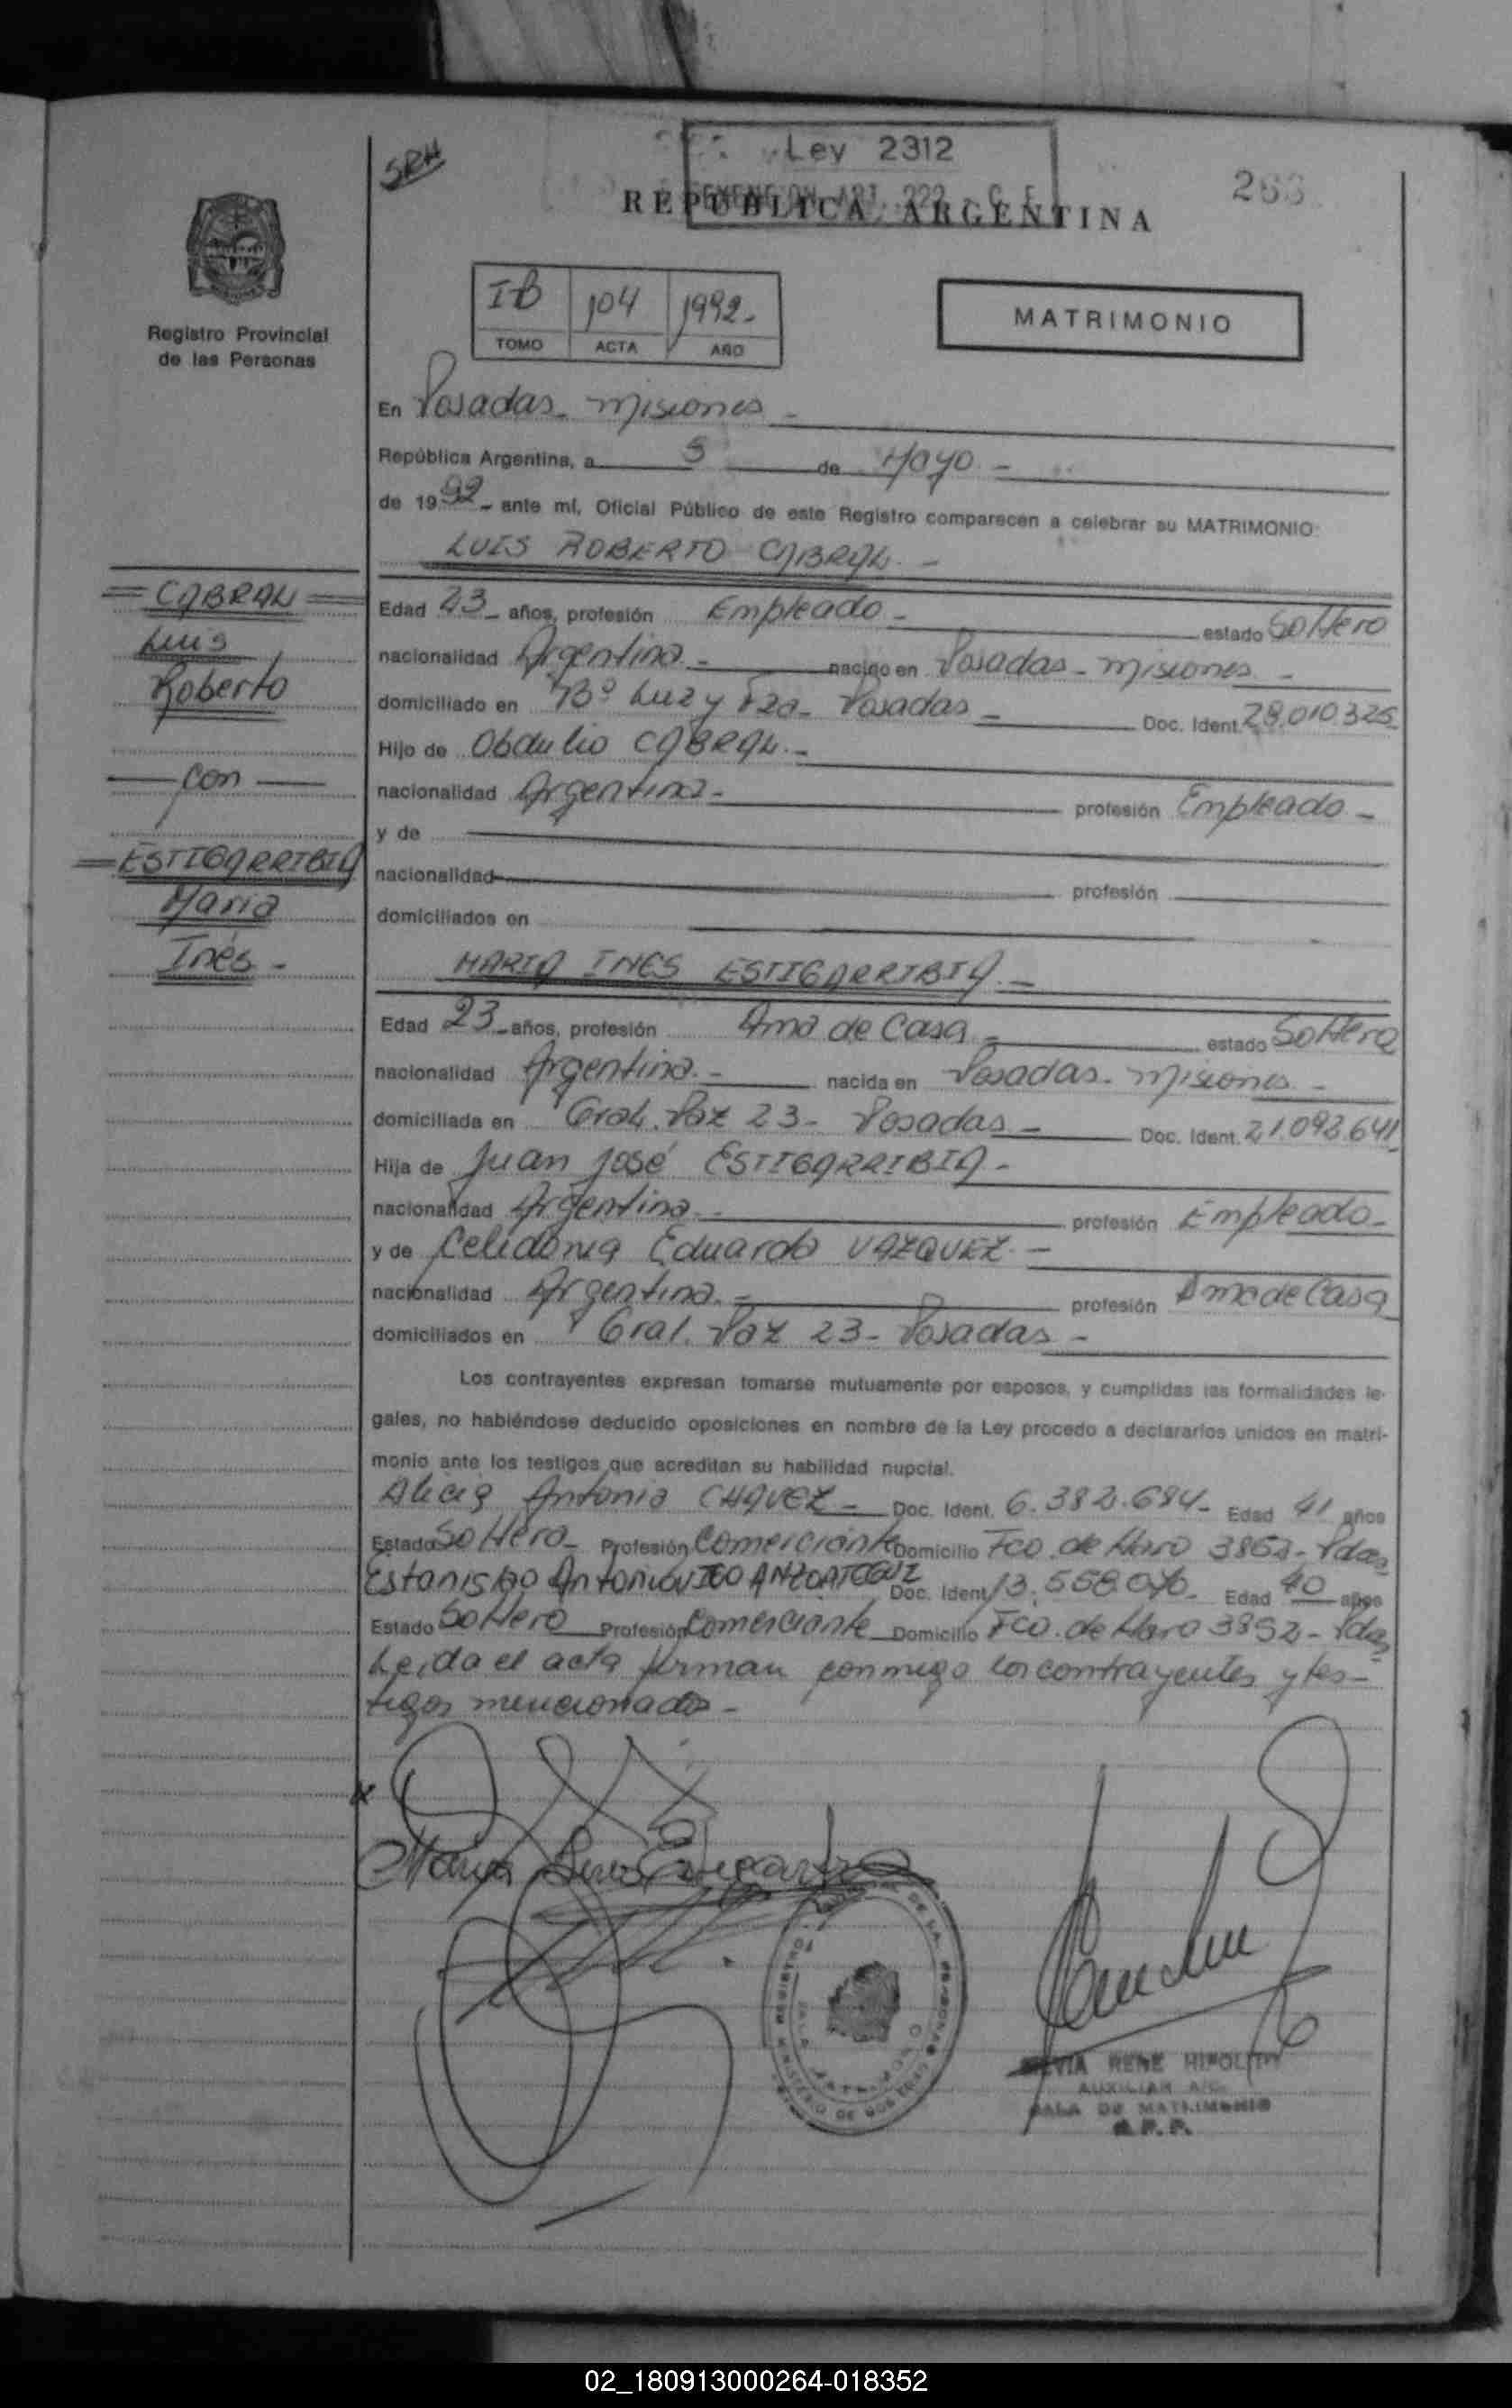 SRH
Ley 2312
EXENCION ART. 222 - C. F.
REPUBLICA ARGENTINA
Registro Provincial
de las Personas
IB 104 1992.-
TOMO ACTA AÑO
MATRIMONIO
En Posadas - Misiones -
República Argentina, a 5 de Mayo -
de 1992 - ante mí, Oficial Público de este Registro comparecen a celebrar su MATRIMONIO:
LUIS ROBERTO CABRAL. -
= CABRAL =
Luis
Roberto
- con -
= ESTIGARRIBIA
Maria
Inés -
Edad 23 - años, profesión Empleado - estado Soltero
nacionalidad Argentina - nacido en Posadas - Misiones -
domiciliado en Bº Luz y Fza - Posadas - Doc. Ident. 28.010.325
Hijo de Obdulio CABRAL. -
nacionalidad Argentina - profesión Empleado -
y de
nacionalidad profesión
domiciliados en
MARIA INES ESTIGARRIBIA. -
Edad 23 - años, profesión Ama de Casa - estado Soltera
nacionalidad Argentina. - nacida en Posadas - Misiones -
domiciliada en Gral. Paz 23 - Posadas - Doc. Ident. 21.093.641
Hija de Juan José ESTIGARRIBIA -
nacionalidad Argentina. - profesión Empleado -
y de Celidonia Eduarda VAZQUEZ. -
nacionalidad Argentina. - profesión Ama de Casa
domiciliados en Gral. Paz 23 - Posadas -
Los contrayentes expresan tomarse mutuamente por esposos, y cumplidas las formalidades le-
gales, no habiéndose deducido oposiciones en nombre de la Ley procedo a declararlos unidos en matri-
monio ante los testigos que acreditan su habilidad nupcial.
Alicia Antonia CHAVEZ - Doc. Ident. 6.382.684 - Edad 41 años
Estado Soltera - Profesión Comerciante Domicilio Fco. de Haro 3862 - Pdas
Estanislao Antonio ANZOATEGUI Doc. Ident. 13.558.076 - Edad 40 años
Estado Soltero Profesión Comerciante Domicilio Fco. de Haro 3852 - Pdas
Leida el acta firman conmigo los contrayentes y tes-
tigos mencionados -
SILVIA RENE HIPOLITO
AUXILIAR A/C.
SALA DE MATRIMONIO
R.P.P.
02_180913000264-018352